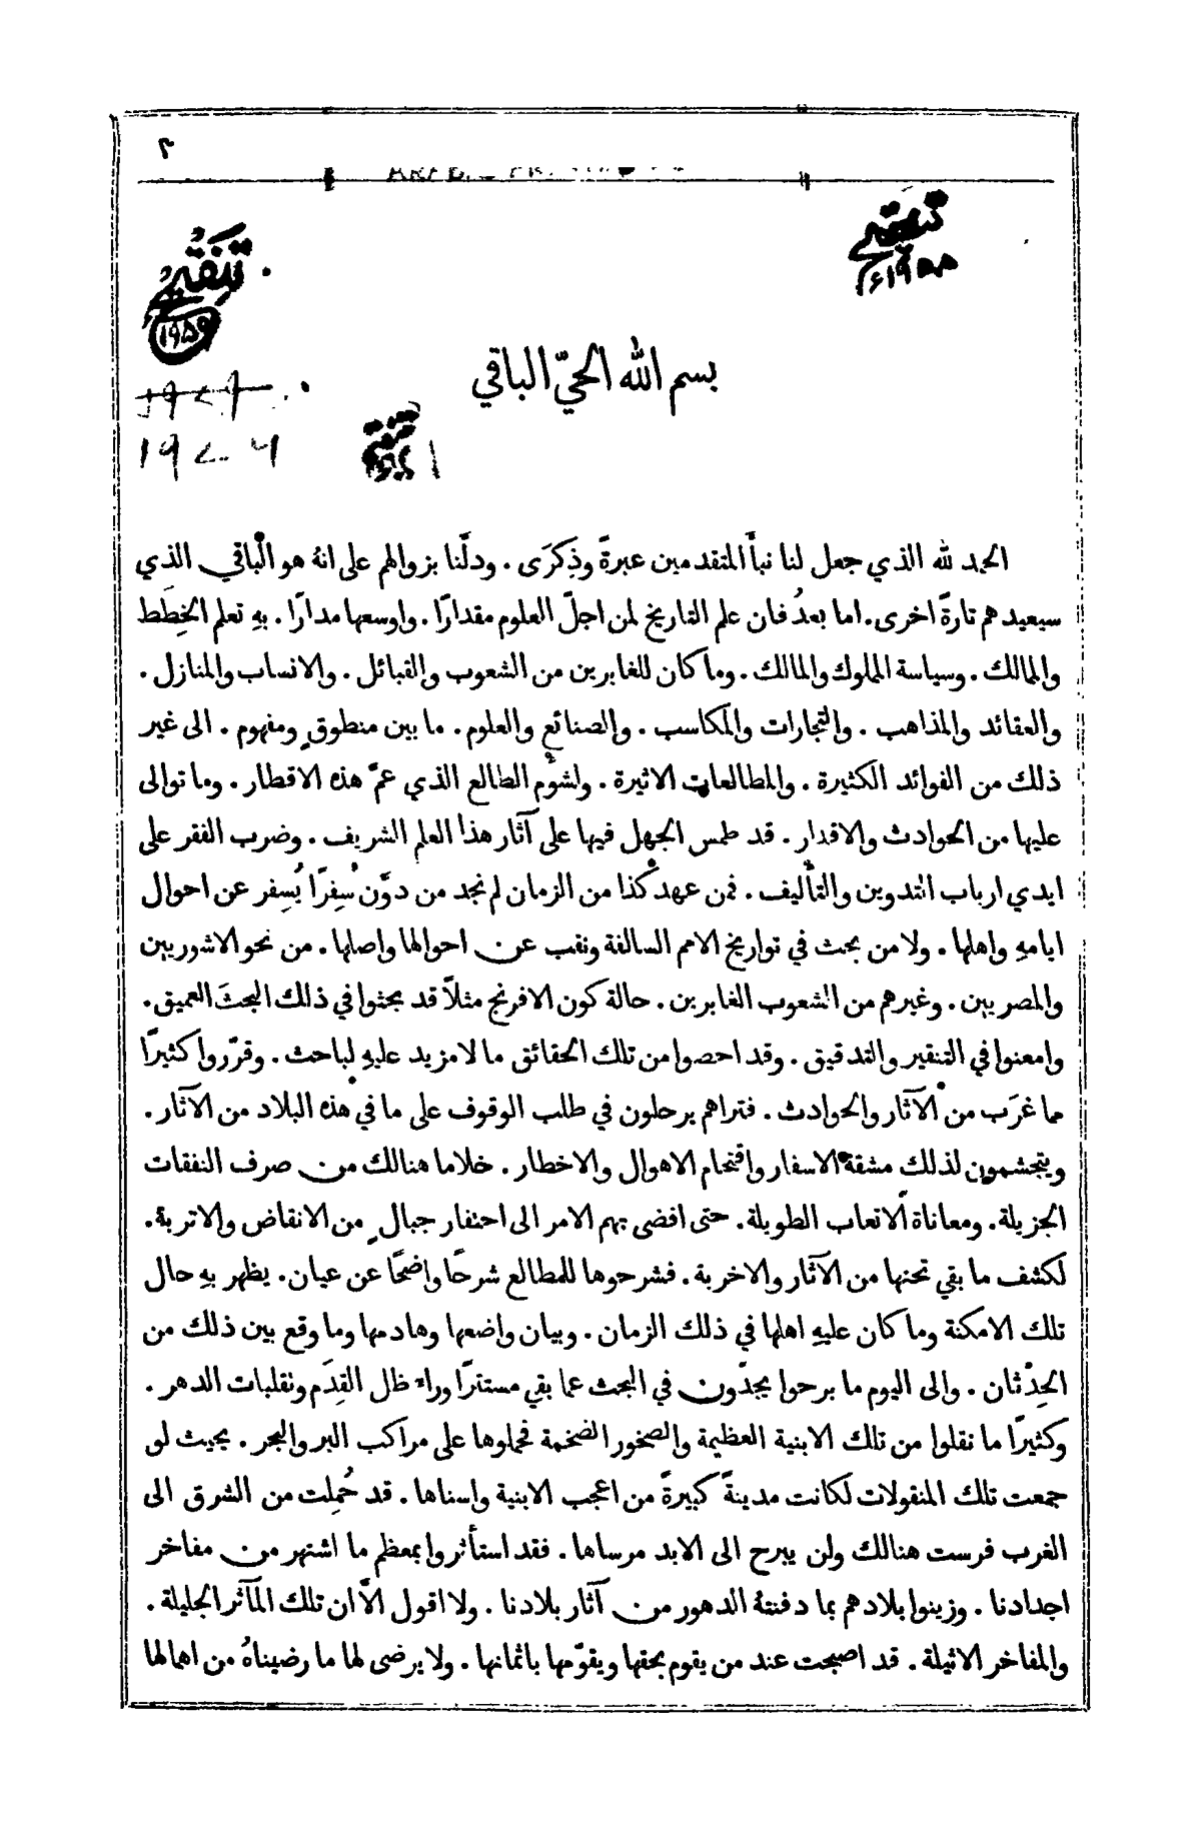 ٢
تنقيح
١٩٥٨ء
تنقيح
١٩٥٩
١٩٧٦
بسم الله الحيّ الباقي
الحمد لله الذي جعل لنا نبأ المتقدمين عبرةً وذِكرَى . ودلَّنا بزوالهم على انهُ هو الباقي الذي
سيعيدهم تارةً اخرى . اما بعدُ فان علم التاريخ لمن اجلّ العلوم مقدارًا . واوسعها مدارًا . بهِ تعلم الخِطَط
والممالك . وسياسة الملوك والممالك . وما كان للغابرين من الشعوب والقبائل . والانساب والمنازل .
والعقائد والمذاهب . والتجارات والمكاسب . والصنائع والعلوم . ما بين منطوقٍ ومفهوم . الى غير
ذلك من الفوائد الكثيرة . والمطالعات الاثيرة . ولشؤم الطالع الذي عمّ هذه الاقطار . وما توالى
عليها من الحوادث والاقدار . قد طمس الجهل فيها على آثار هذا العلم الشريف . وضرب الفقر على
ايدي ارباب التدوين والتأليف . فمن عهد كذا من الزمان لم نجد من دوَّن سِفرًا يُسفِر عن احوال
ايامهِ واهلها . ولا من بحث في تواريخ الامم السالفة ونقب عن احوالها واصلها . من نحو الاشوريين
والمصريين . وغيرهم من الشعوب الغابرين . حالة كون الافرنج مثلاً قد بحثوا في ذلك البحثَ العميق .
وامعنوا في التنقير والتدقيق . وقد احصوا من تلك الحقائق ما لا مزيد عليهِ لباحث . وقرّروا كثيرًا
مما غرَب من الآثار والحوادث . فتراهم يرحلون في طلب الوقوف على ما في هذه البلاد من الآثار .
ويتجشمون لذلك مشقة الاسفار واقتحام الاهوال والاخطار . خلاما هنالك من صرف النفقات
الجزيلة . ومعاناة الاتعاب الطويلة . حتى افضى بهم الامر الى احتفار جبالٍ من الانقاض والاتربة .
لكشف ما بقي تحتها من الآثار والاخربة . فشرحوها للمطالع شرحًا واضحًا عن عيان . يظهر بهِ حال
تلك الامكنة وما كان عليهِ اهلها في ذلك الزمان . وبيان واضعها وهادمها وما وقع بين ذلك من
الحِدْثان . والى اليوم ما برحوا يجدّون في البحث عما بقي مستترًا وراءَ ظل القِدَم وتقلبات الدهر .
وكثيرًا ما نقلوا من تلك الابنية العظيمة والصخور الضخمة فحملوها على مراكب البر والبحر . بحيث لو
جمعت تلك المنقولات لكانت مدينةً كبيرةً من اعجب الابنية واسناها . قد حُمِلت من الشرق الى
الغرب فرست هنالك ولن يبرح الى الابد مرساها . فقد استأثروا بمعظم ما اشتهر من مفاخر
اجدادنا . وزينوا بلادهم بما دفنتهُ الدهور من آثار بلادنا . ولا اقول الاَّ ان تلك المآثر الجليلة .
والمفاخر الاثيلة . قد اصبحت عند من يقوم بحقها ويقوّمها باثمانها . ولا يرضى لها ما رضيناهُ من اهمالها